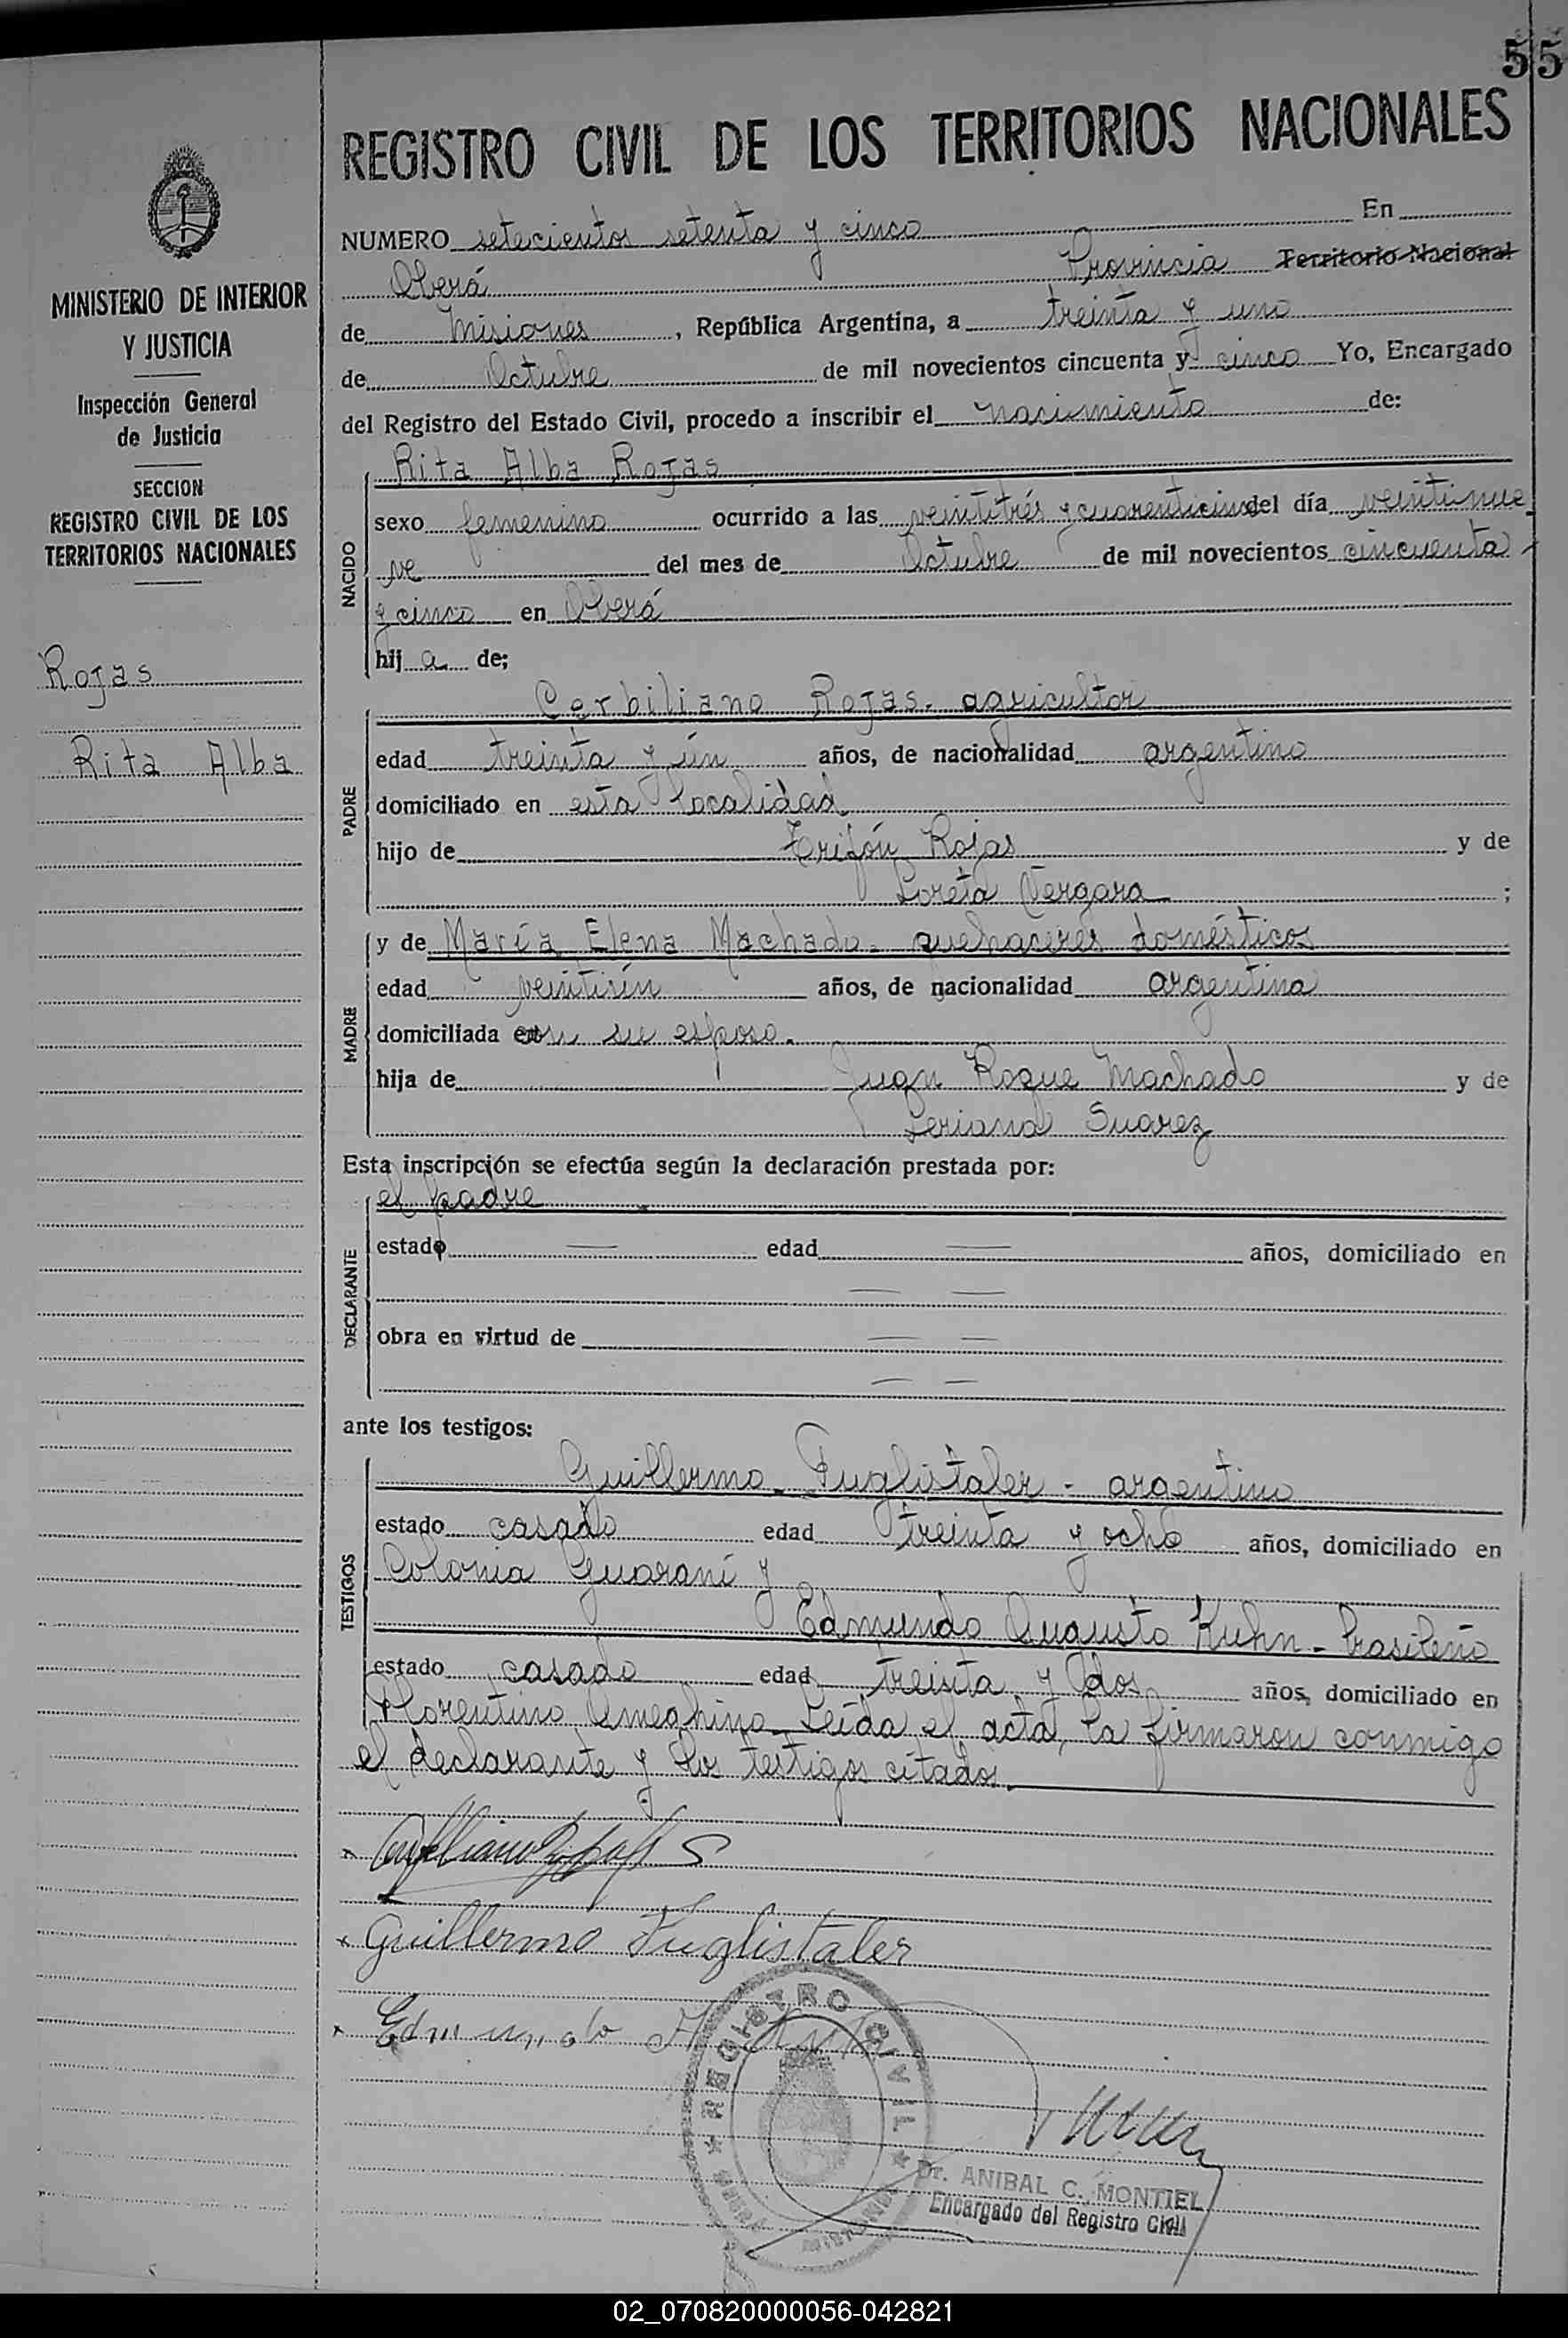 55
REGISTRO CIVIL DE LOS TERRITORIOS NACIONALES
MINISTERIO DE INTERIOR
Y JUSTICIA
Inspección General
de Justicia
SECCION
REGISTRO CIVIL DE LOS
TERRITORIOS NACIONALES
Rojas
Rita Alba
NUMERO setecientos setenta y cinco En
Oberá Provincia Territorio Nacional
de Misiones, República Argentina, a treinta y uno
de Octubre de mil novecientos cincuenta y cinco Yo, Encargado
del Registro del Estado Civil, procedo a inscribir el nacimiento de:
NACIDO
Rita Alba Rojas
sexo femenino ocurrido a las veintitrés y cuarenticinco del día veintinue
ve del mes de Octubre de mil novecientos cincuenta
y cinco en Oberá
hija de;
PADRE
Cerbiliano Rojas. agricultor
edad treinta y ún años, de nacionalidad argentino
domiciliado en esta localidad
hijo de Trifón Rojas y de
Loreta Vergara ;
MADRE
y de María Elena Machado. quehaceres domésticos
edad veintiún años, de nacionalidad argentina
domiciliada con su esposo.
hija de Juan Roque Machado y de
Suarez
Esta inscripción se efectúa según la declaración prestada por:
DECLARANTE
el padre
estado — edad — años, domiciliado en
— —
obra en virtud de — —
— —
ante los testigos:
TESTIGOS
Guillermo Fuglistaler - argentino
estado casado edad treinta y ocho años, domiciliado en
Colonia Guaraní y
Edmundo Augusto Kuhn - brasileño
estado casado edad treinta y dos años, domiciliado en
Florentino Ameghino. Leída el acta, la firmaron conmigo
el declarante y los testigos citados.
x
x Guillermo Fuglistaler
x Edmundo A. Kuhn
REGISTRO CIVIL
Dr. ANIBAL C. MONTIEL
Encargado del Registro Civil
02_070820000056-042821